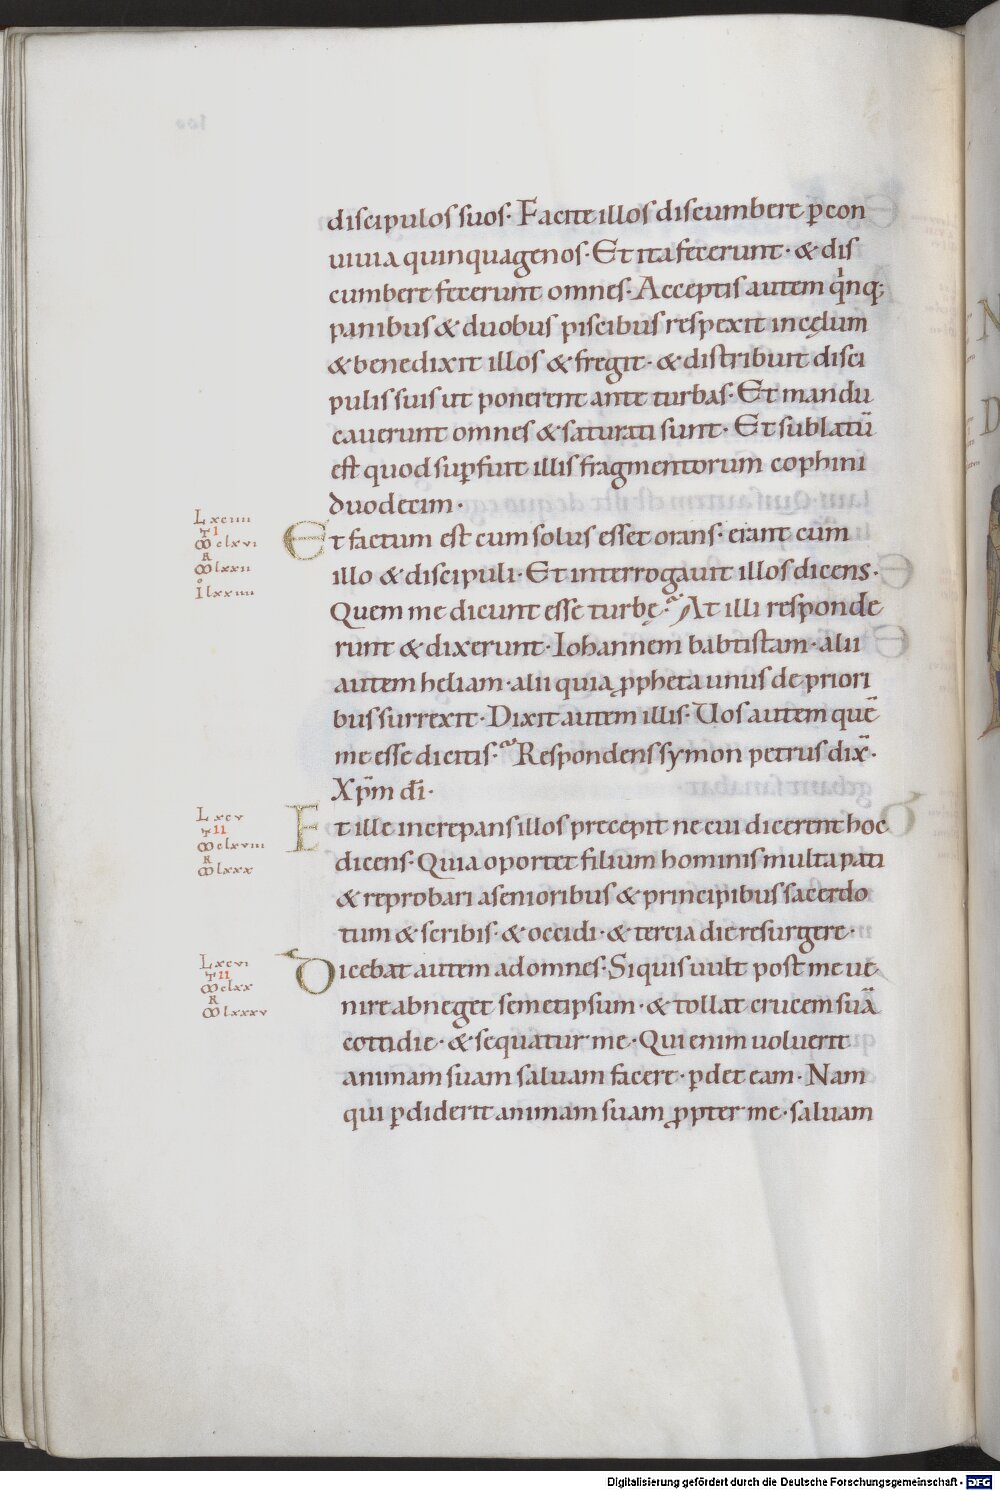 discipulos suos· Facite illos discumbere p̲ con
uiuia quinquagenos· Et ita fecerunt· & dis
cumbere fecerunt omnes· Acceptis autem qͥnq;
panibus & duobus piscibus respexit in cęlum
& benedixit illos & fregit· & distribuit disci
pulis suis ut ponerent ante turbas· Et mandu
cauerunt omnes & saturati sunt· Et sublatū
est quod sup̲fuit illis fragmentorum cophini
duodecim·
L xciiii
T I
ꝏ clxvi
R
ꝏ lxxii
Io
I lxxiiii
Et factum est cum solus esset orans· erant cum
illo & discipuli· Et interrogauit illos dicens·
Quem me dicunt esse turbę· At illi responde
runt & dixerunt· Iohannem babtistam· alii
autem heliam· alii quia ꝓpheta unus de priori
bus surrexit· Dixit autem illis· Uos autem quē
me esse dicitis· Respondens symon petrus dix̄·
Xp̄m dī·
L xcv
T II
ꝏ clxviii
R
ꝏ lxxx
Et ille increpans illos precepit ne cui dicerent hoc
dicens· Quia oportet filium hominis multa pati
& reprobari a senioribus & principibus sacerdo
tum & scribis· & occidi· & tercia die resurgere·
L xcvi
T II
ꝏ clxx
R
ꝏ lxxxv
Dicebat autem ad omnes· Si quis uult post me ue
nire abneget semetipsum· & tollat crucem suā
cottidie· & sequatur me· Qui enim uoluerit
animam suam saluam facere· p̲det eam· Nam
qui p̲diderit animam suam ꝓpter me· saluam
Digitalisierung gefördert durch die Deutsche Forschungsgemeinschaft - DFG